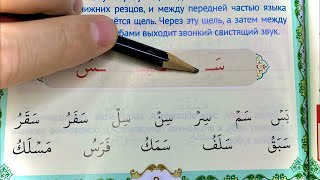 нижних резцов, и между передней частью языка
ётся щель. Через эту щель, а затем между
бами выходит звонкий свистящий звук.
سَـ ـسْ
بَسْ سَمْ سِرْ سِنْ سِلْ سَفَرُ سَقَرُ
سَبَقُ سَلَفُ سَمَكُ فَرَسُ مَسْلَكُ